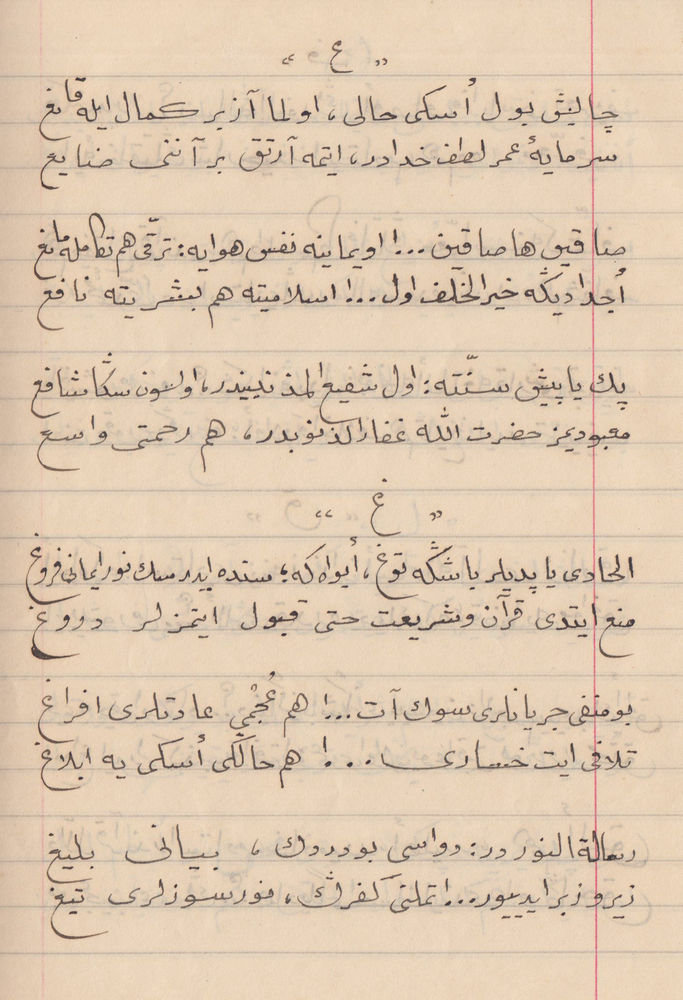 „ ع “
چالیش بول أسكی حالی، اولما آز بر كمال ایله قانع
سرمایۀ عمر لطف خدادر، ایتمه آرتق بر آننی ضایع
صاقین ها صاقین...! اویما ینه نفس هوایه: ترقّی هم تكامله مانع
أجدادیڭه خیر الخلف اول...! اسلامیته هم بشریته نافع
پك یاپیش سنّته: اول شفیع المذنبیندر، اولسون سڭا شافع
معبودیمز حضرت الله غفار الذنوبدر، هم رحمتی واسع
„ غ “
الحادی یاپدیلر باشڭه توغ، أیواه كه؛ سنده ایدرسك نور ایمانی فروغ
منع ایتدی قرآن وشریعت حتی قبول ایتمزلر دروغ
بو منفی جریانلری سوك آت...! هم عُجْمِی عادتلری افراغ
تلافی ایت خساری...! هم حالڭی أسكی یه ابلاغ
رسالة النور در: دواسی بو دردوك، بیانی بلیغ
زیر و زبر ایدییور...! تملنی كفرڭ، نور سوزلری تیغ